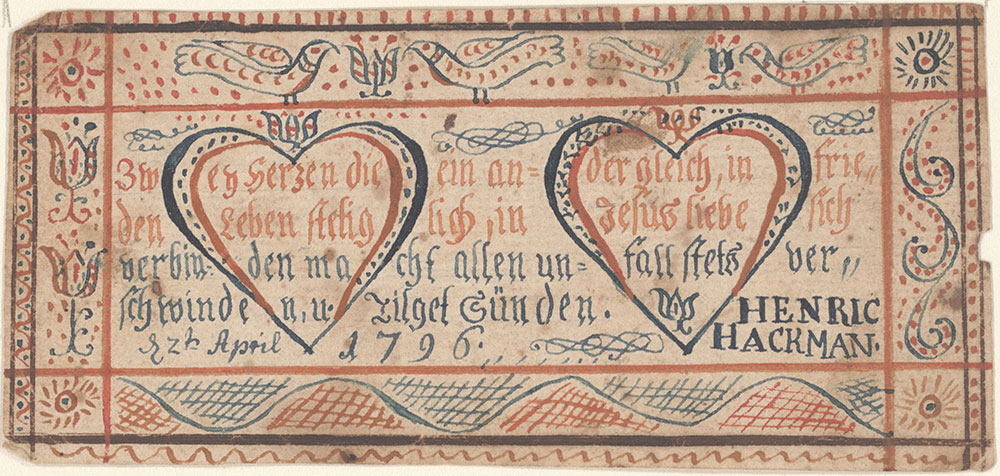 Zwey Herzen die ein an= der gleich, in frie=
den Leben stetig lich, in Jesus liebe sich
verbin= den macht allen un= fall stets ver=
schwinden, u. Tilget Sünden. HENRIC
2th April 1796. HACKMAN.